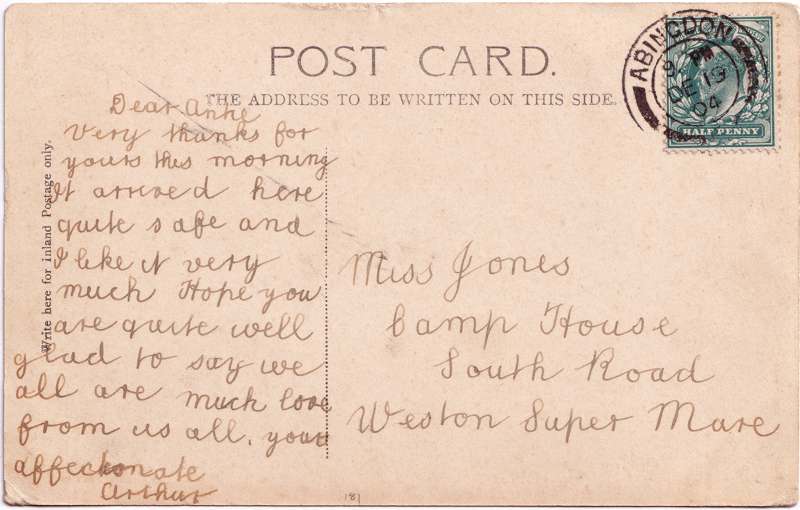 POST CARD.
THE ADDRESS TO BE WRITTEN ON THIS SIDE.
ABINGDON
PM
DE 19
04
HALF PENNY
Write here for inland Postage only.
Dear
Very thanks for
yours this morning
It arrived here
quite safe and
I like it very
much Hope you
are quite well
glad to say we
all are much love
from us all. your
affectionate
Arthur
Miss Jones
Camp House
South Road
Weston Super Mare
181